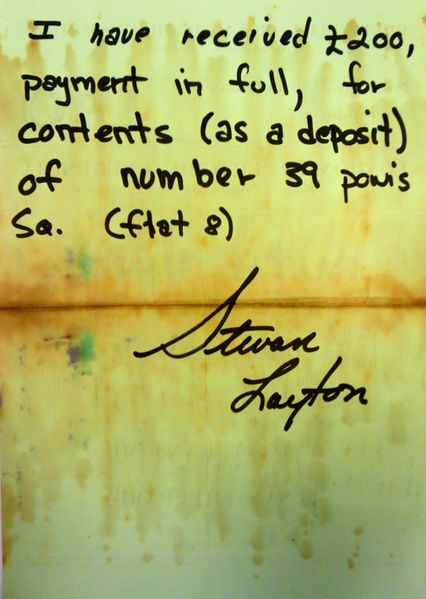 I have received £200,
payment in full, for
contents (as a deposit)
of number 39 powis
Sq. (flat 8)
Stewart
Layton